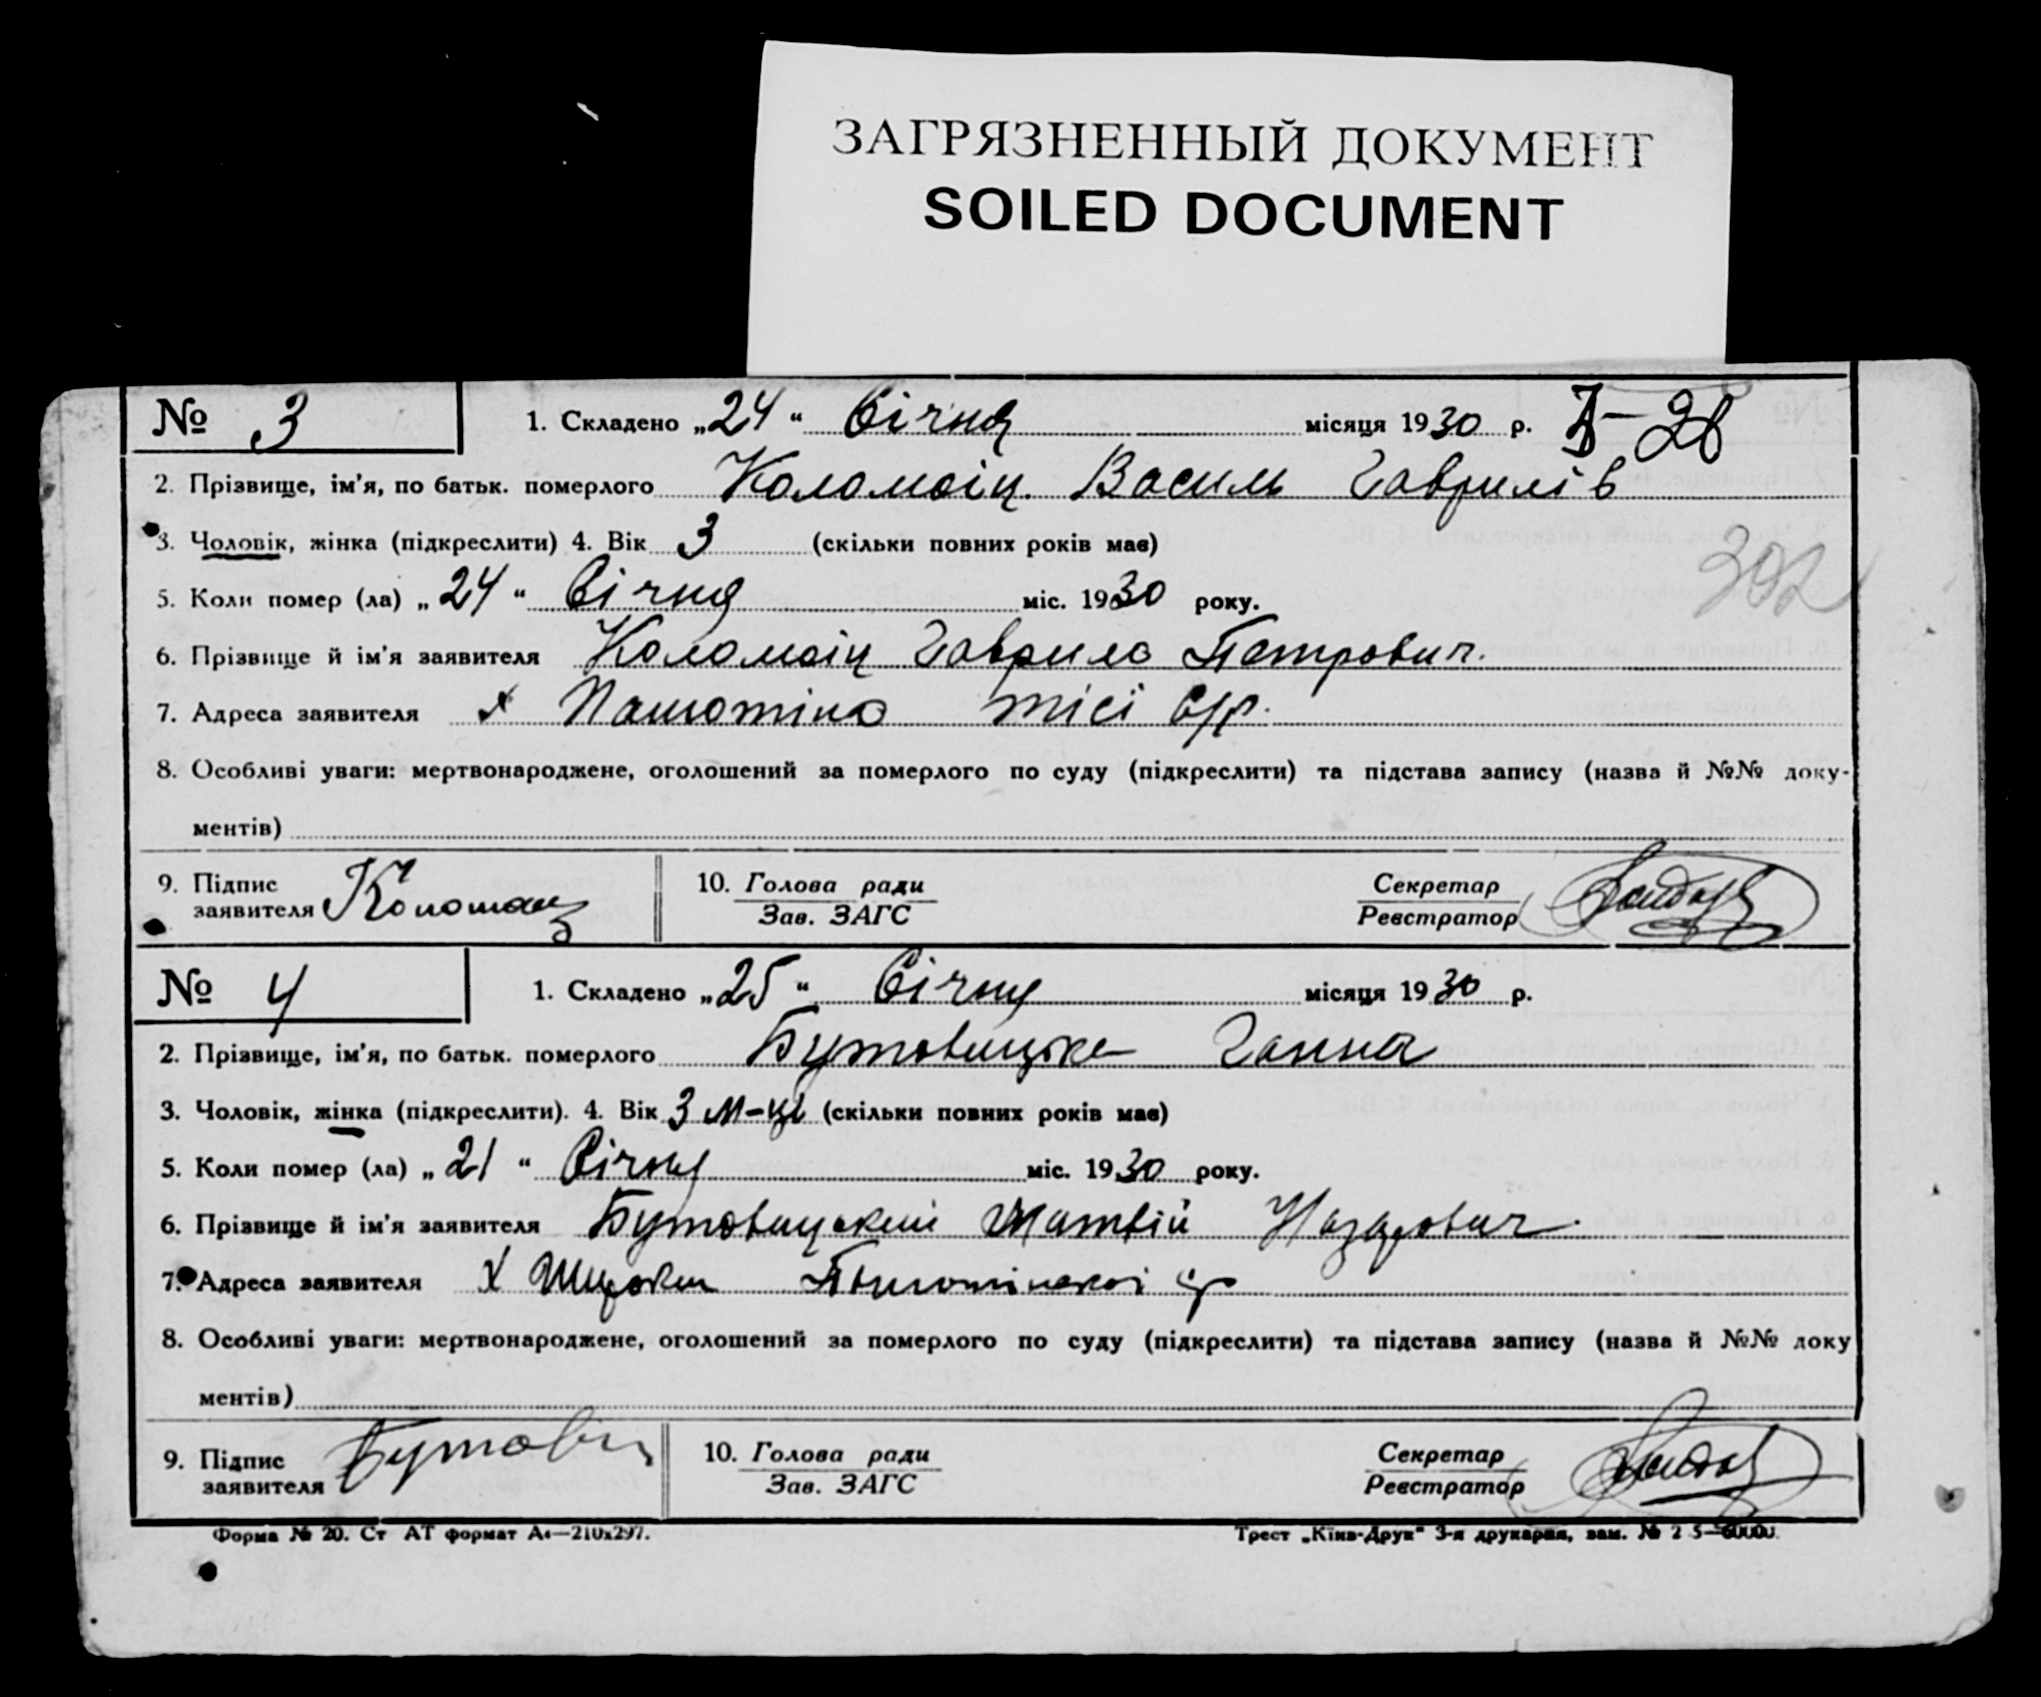 ЗАГРЯЗНЕННЫЙ ДОКУМЕНТ
SOILED DOCUMENT
№ 3 1. Складено „24“ Січня місяця 1930 р.
2. Прізвище, ім'я, по батьк. померлого Коломоіц Василь Гаврилів
3. Чоловік, жінка (підкреслити) 4. Вік 3 (скільки повних років має)
302
5. Коли помер (ла) „24“ Січня міс. 1930 року.
6. Прізвище й ім'я заявителя Коломоіц Гаврило Петрович.
7. Адреса заявителя х Пашотіно тісі с/р.
8. Особливі уваги: мертвонароджене, оголошений за померлого по суду (підкреслити) та підстава запису (назва й №№ доку-
ментів)
9. Підпис заявителя 10. Голова ради Секретар
Зав. ЗАГС Реєстратор
№ 4 1. Складено „25“ Січня місяця 1930 р.
2. Прізвище, ім'я, по батьк. померлого Бутовицька Ганна
3. Чоловік, жінка (підкреслити). 4. Вік 3 м-ці (скільки повних років має)
5. Коли помер (ла) „21“ Січня міс. 1930 року.
6. Прізвище й ім'я заявителя Бутовицький Матвій Назарович.
7. Адреса заявителя х
8. Особливі уваги: мертвонароджене, оголошений за померлого по суду (підкреслити) та підстава запису (назва й №№ доку
ментів)
9. Підпис заявителя Бутовиц 10. Голова ради Секретар
Зав. ЗАГС Реєстратор
Форма № 20. Ст АТ формат А4—210х297. Трест „Київ-Друк“ 3-я друкарня, зам. №